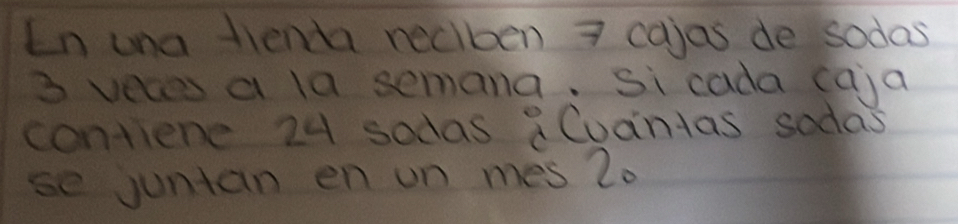 En una tienda reciben 7 cajas de sodas
3 veces a la semana. Si cada caja
contiene 24 sodas ¿Cuántas sodas
se juntan en un mes?.